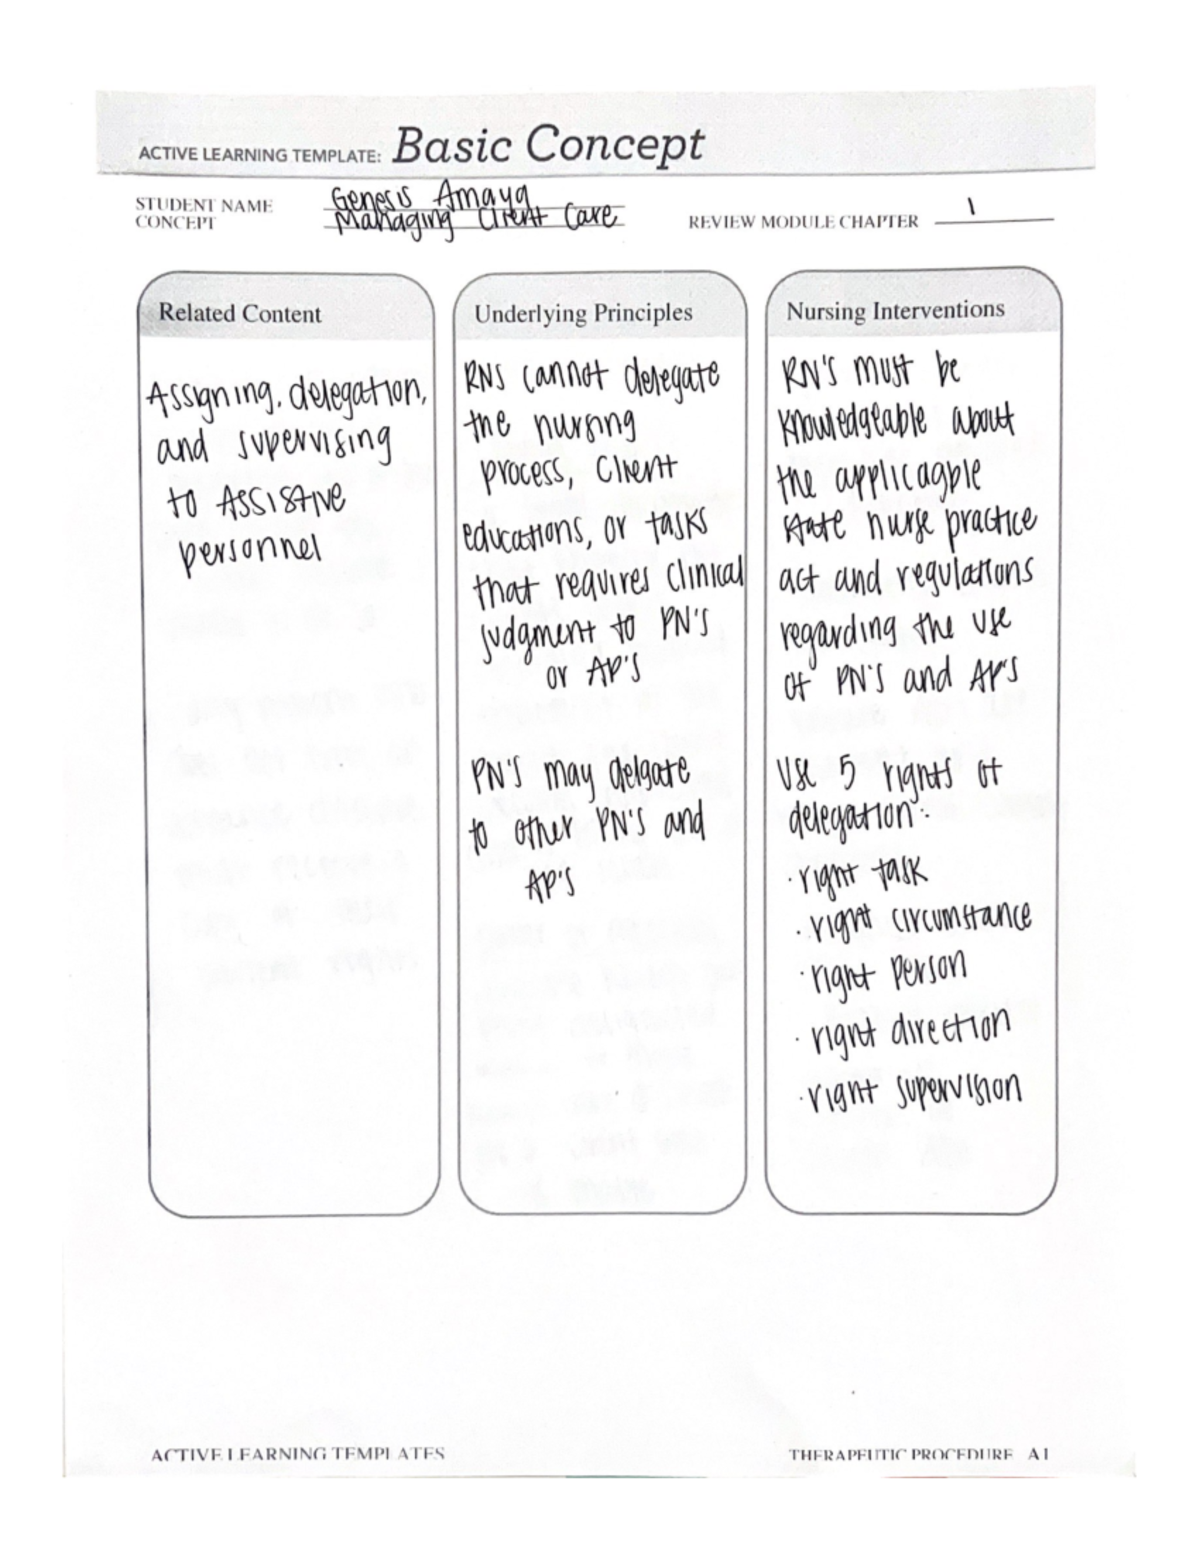 ACTIVE LEARNING TEMPLATE: Basic Concept
STUDENT NAME Genesis Amaya
CONCEPT Managing Client Care REVIEW MODULE CHAPTER 1
Related Content
Assigning, delegation,
and supervising
to Assistive
personnel
Underlying Principles
RNS cannot delegate
the nursing
process, Client
educations, or tasks
that requires clinical
judgment to PN'S
or AP'S
PN'S may delgate
to other PN'S and
AP'S
Nursing Interventions
RN'S must be
knowledgeable about
the applicagple
state nurse practice
act and regulations
regarding the use
of PN'S and AP'S
Use 5 rights of
delegation:
· right task
· right circumstance
· right person
· right direction
· right supervision
ACTIVE LEARNING TEMPLATES
THERAPEUTIC PROCEDURE A1